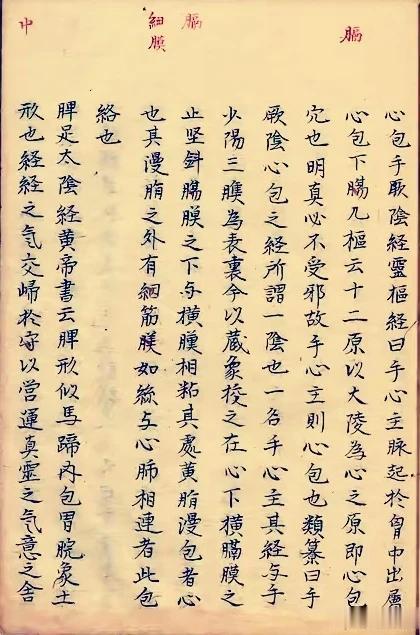 膈
膈
細膜
中
心包手厥陰経靈樞経曰手心主脉起於胷中出屬
心包下膓几樞云十二原以大陵為心之原即心包
穴也明真心不受邪故手心主則心包也類纂曰手
厥陰心包之経所謂一陰也一名手心主其経与手
少陽三膲為表裏今以藏象挍之在心下横膈膜之
止竖斜膓膜之下与横膜相粘其處黄脂漫包者心
也其漫脂之外有細筋膜如絲与心肺相連者此包
絡也
脾足太陰経黄帝書云脾形似馬蹄內包胃脘象土
形也経経之气交歸於守以营運真靈之气意之舍